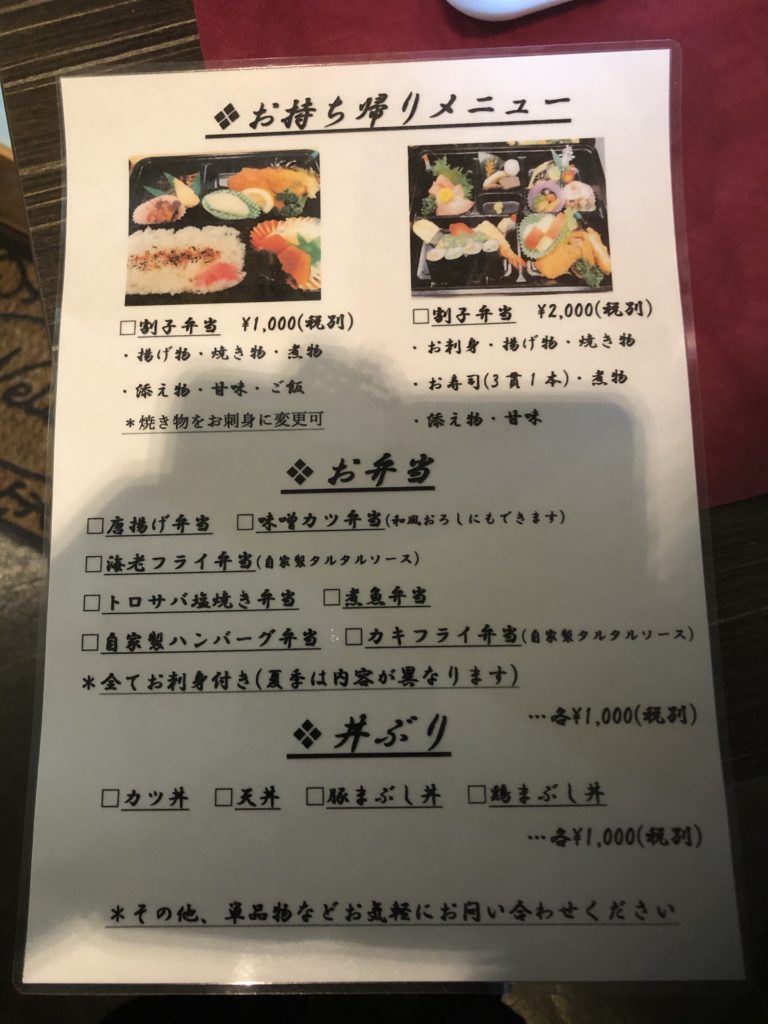 ❖お持ち帰りメニュー
□割子弁当 ¥1,000(税別)
・揚げ物・焼き物・煮物
・添え物・甘味・ご飯
＊焼き物をお刺身に変更可
□割子弁当 ¥2,000(税別)
・お刺身・揚げ物・焼き物
・お寿司(3貫1本)・煮物
・添え物・甘味
❖お弁当
□唐揚げ弁当 □味噌カツ弁当(和風おろしにもできます)
□海老フライ弁当(自家製タルタルソース)
□トロサバ塩焼き弁当 □煮魚弁当
□自家製ハンバーグ弁当 □カキフライ弁当(自家製タルタルソース)
＊全てお刺身付き(夏季は内容が異なります)
…各¥1,000(税別)
❖丼ぶり
□カツ丼 □天丼 □豚まぶし丼 □鶏まぶし丼
…各¥1,000(税別)
＊その他、単品物などお気軽にお問い合わせください